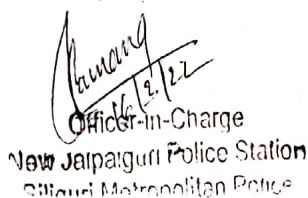 16/2/22
Officer-in-Charge
New Jalpaiguri Police Station
Siliguri Metropolitan Police